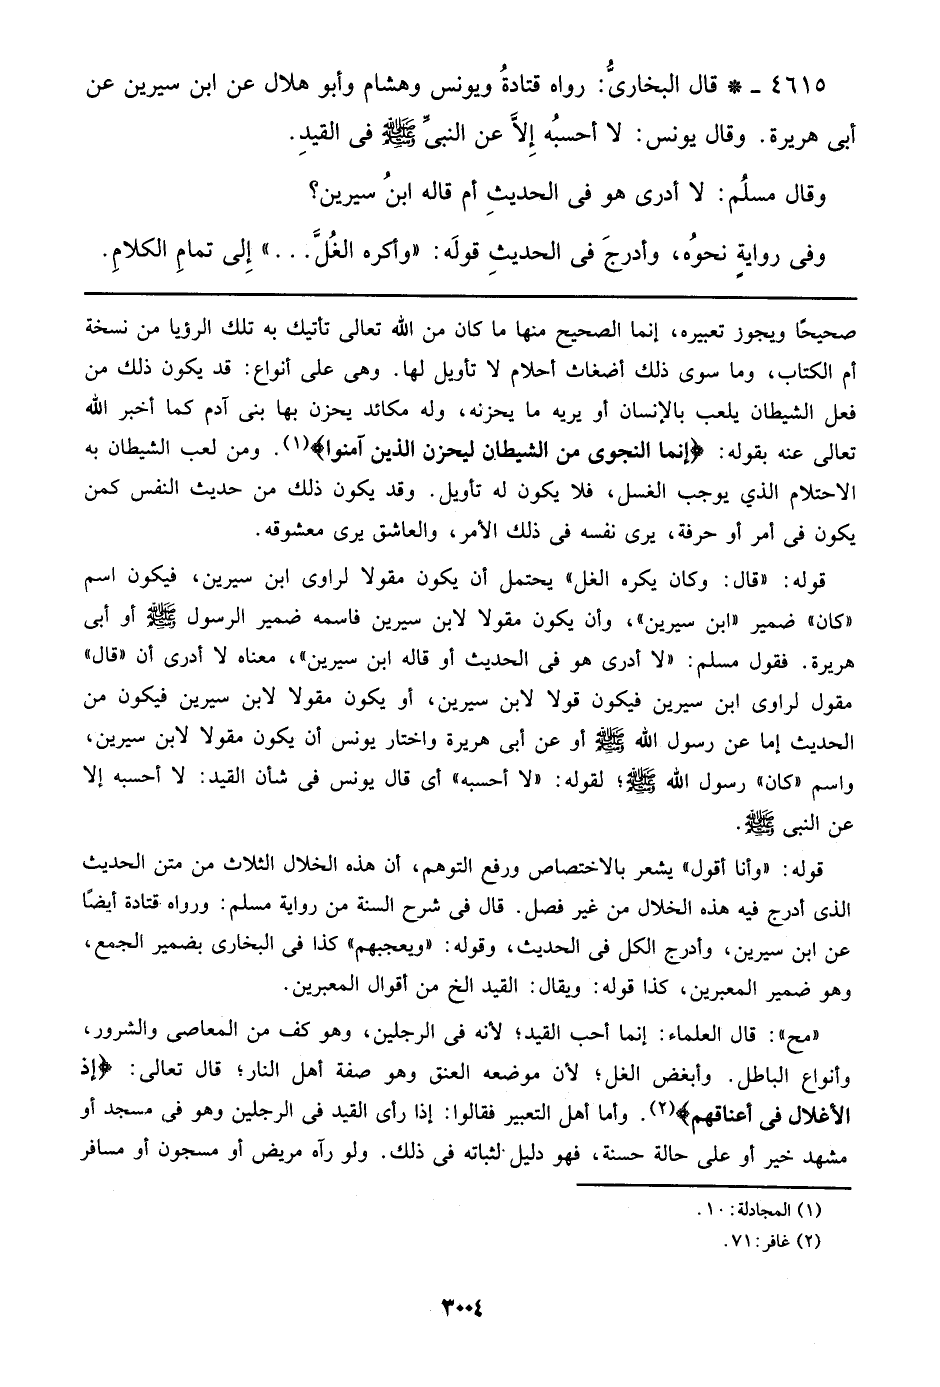 ٤٦١٥ ـ * قال البخارىُّ: رواه قتادةُ ويونس وهشام وأبو هلال عن ابن سيرين عن
أبى هريرة. وقال يونس: لا أحسبُه إلاَّ عن النبىِّ ﷺ فى القيدِ.
وقال مسلُم: لا أدرى هو فى الحديثِ أم قاله ابنُ سيرين؟
وفى روايةٍ نحوُه، وأدرجَ فى الحديثِ قولَه: «وأكره الغُلَّ...» إلى تمامِ الكلامِ.
صحيحًا ويجوز تعبيره، إنما الصحيح منها ما كان من الله تعالى تأتيك به تلك الرؤيا من نسخة
أم الكتاب، وما سوى ذلك أضغاث أحلام لا تأويل لها. وهى على أنواع: قد يكون ذلك من
فعل الشيطان يلعب بالإنسان أو يريه ما يحزنه، وله مكائد يحزن بها بنى آدم كما أخبر الله
تعالى عنه بقوله: ﴿إنما النجوى من الشيطان ليحزن الذين آمنوا﴾(١). ومن لعب الشيطان به
الاحتلام الذي يوجب الغسل، فلا يكون له تأويل. وقد يكون ذلك من حديث النفس كمن
يكون فى أمر أو حرفة، يرى نفسه فى ذلك الأمر، والعاشق يرى معشوقه.
قوله: «قال: وكان يكره الغل» يحتمل أن يكون مقولا لراوى ابن سيرين، فيكون اسم
«كان» ضمير «ابن سيرين»، وأن يكون مقولا لابن سيرين فاسمه ضمير الرسول ﷺ أو أبى
هريرة. فقول مسلم: «لا أدرى هو فى الحديث أو قاله ابن سيرين»، معناه لا أدرى أن «قال»
مقول لراوى ابن سيرين فيكون قولا لابن سيرين، أو يكون مقولا لابن سيرين فيكون من
الحديث إما عن رسول الله ﷺ أو عن أبى هريرة واختار يونس أن يكون مقولا لابن سيرين،
واسم «كان» رسول الله ﷺ؛ لقوله: «لا أحسبه» أى قال يونس فى شأن القيد: لا أحسبه إلا
عن النبى ﷺ.
قوله: «وأنا أقول» يشعر بالاختصاص ورفع التوهم، أن هذه الخلال الثلاث من متن الحديث
الذى أدرج فيه هذه الخلال من غير فصل. قال فى شرح السنة من رواية مسلم: ورواه قتادة أيضًا
عن ابن سيرين، وأدرج الكل فى الحديث، وقوله: «ويعجبهم» كذا فى البخارى بضمير الجمع،
وهو ضمير المعبرين، كذا قوله: ويقال: القيد الخ من أقوال المعبرين.
«مح»: قال العلماء: إنما أحب القيد؛ لأنه فى الرجلين، وهو كف من المعاصى والشرور،
وأنواع الباطل. وأبغض الغل؛ لأن موضعه العنق وهو صفة أهل النار؛ قال تعالى: ﴿إذ
الأغلال فى أعناقهم﴾(٢). وأما أهل التعبير فقالوا: إذا رأى القيد فى الرجلين وهو فى مسجد أو
مشهد خير أو على حالة حسنة، فهو دليل لثباته فى ذلك. ولو رآه مريض أو مسجون أو مسافر
(١) المجادلة: ١٠.
(٢) غافر: ٧١.
٣٠٠٤